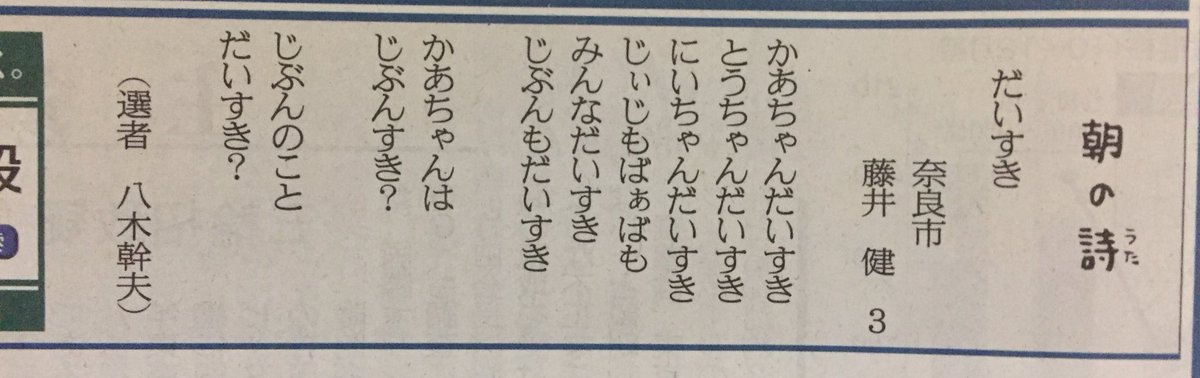 朝の詩
うた
だいすき
奈良市
藤井 健 3
かあちゃんだいすき
とうちゃんだいすき
にいちゃんだいすき
じぃじもばぁばも
みんなだいすき
じぶんもだいすき
かあちゃんは
じぶんすき?
じぶんのこと
だいすき?
(選者 八木幹夫)